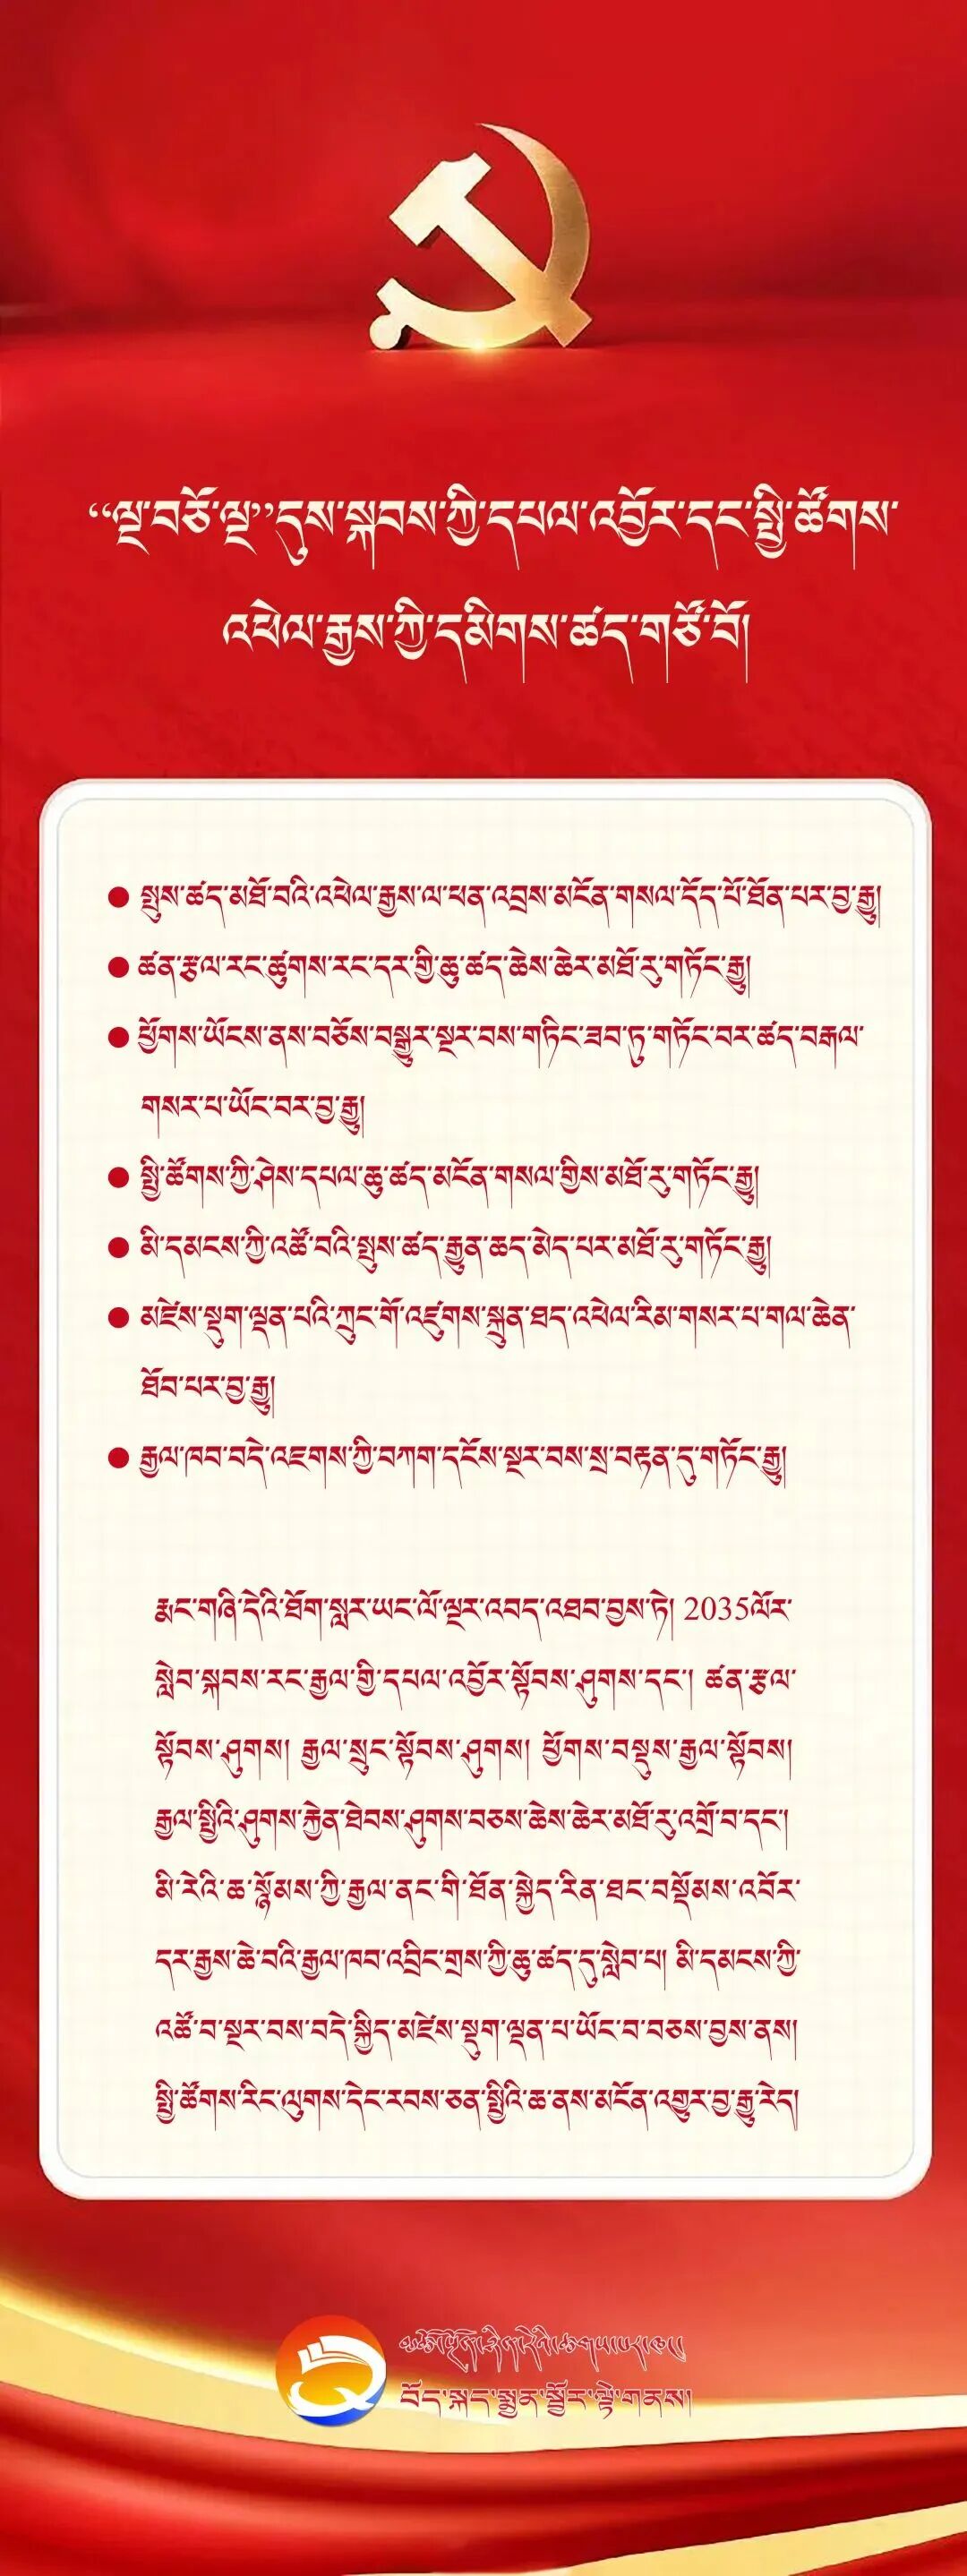 “ལྔ་བཅོ་ལྔ”དུས་སྐབས་ཀྱི་དཔལ་འབྱོར་དང་སྤྱི་ཚོགས་
འཕེལ་རྒྱས་ཀྱི་དམིགས་ཚད་གཙོ་བོ།
● སྤུས་ཚད་མཐོ་བའི་འཕེལ་རྒྱས་ལ་ཕན་འབྲས་མངོན་གསལ་དོད་པོ་ཐོན་པར་བྱ་རྒྱུ།
● ཚན་རྩལ་རང་ཚུགས་རང་དར་གྱི་ཆུ་ཚད་ཆེས་ཆེར་མཐོ་རུ་གཏོང་རྒྱུ།
● ཕྱོགས་ཡོངས་ནས་བཅོས་བསྒྱུར་སྔར་བས་གཏིང་ཟབ་ཏུ་གཏོང་བར་ཚད་བརྒལ་
གསར་པ་ཡོང་བར་བྱ་རྒྱུ།
● སྤྱི་ཚོགས་ཀྱི་ཤེས་དཔལ་ཆུ་ཚད་མངོན་གསལ་གྱིས་མཐོ་རུ་གཏོང་རྒྱུ།
● མི་དམངས་ཀྱི་འཚོ་བའི་སྤུས་ཚད་རྒྱུན་ཆད་མེད་པར་མཐོ་རུ་གཏོང་རྒྱུ།
● མཛེས་སྡུག་ལྡན་པའི་ཀྲུང་གོ་འཛུགས་སྐྲུན་ཐད་འཕེལ་རིམ་གསར་པ་གལ་ཆེན་
ཐོབ་པར་བྱ་རྒྱུ།
● རྒྱལ་ཁབ་བདེ་འཇགས་ཀྱི་བཀག་དངོས་སྔར་བས་སྲ་བརྟན་དུ་གཏོང་རྒྱུ།
རྨང་གཞི་དེའི་ཐོག་སླར་ཡང་ལོ་ལྔར་འབད་འཐབ་བྱས་ཏེ། 2035ལོར་
སླེབ་སྐབས་རང་རྒྱལ་གྱི་དཔལ་འབྱོར་སྟོབས་ཤུགས་དང་། ཚན་རྩལ་
སྟོབས་ཤུགས། རྒྱལ་སྲུང་སྟོབས་ཤུགས། ཕྱོགས་བསྡུས་རྒྱལ་སྟོབས།
རྒྱལ་སྤྱིའི་ཤུགས་རྐྱེན་ཐེབས་ཤུགས་བཅས་ཆེས་ཆེར་མཐོ་རུ་འགྲོ་བ་དང་།
མི་རེའི་ཆ་སྙོམས་ཀྱི་རྒྱལ་ནང་གི་ཐོན་སྐྱེད་རིན་ཐང་བསྡོམས་འབོར་
དར་རྒྱས་ཆེ་བའི་རྒྱལ་ཁབ་འབྲིང་གྲས་ཀྱི་ཆུ་ཚད་དུ་སླེབ་པ། མི་དམངས་ཀྱི་
འཚོ་བ་སྔར་བས་བདེ་སྐྱིད་མཛེས་སྡུག་ལྡན་པ་ཡོང་བ་བཅས་བྱས་ནས།
སྤྱི་ཚོགས་རིང་ལུགས་དེང་རབས་ཅན་སྤྱིའི་ཆ་ནས་མངོན་འགྱུར་བྱ་རྒྱུ་རེད།
བོད་སྐད་སྨྱན་སྦྱོར་ལྟེ་གནས།